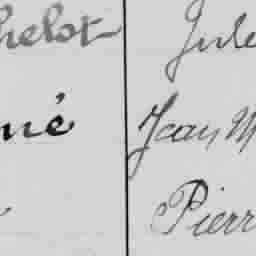 helot Jule
né Jean M
Pierr